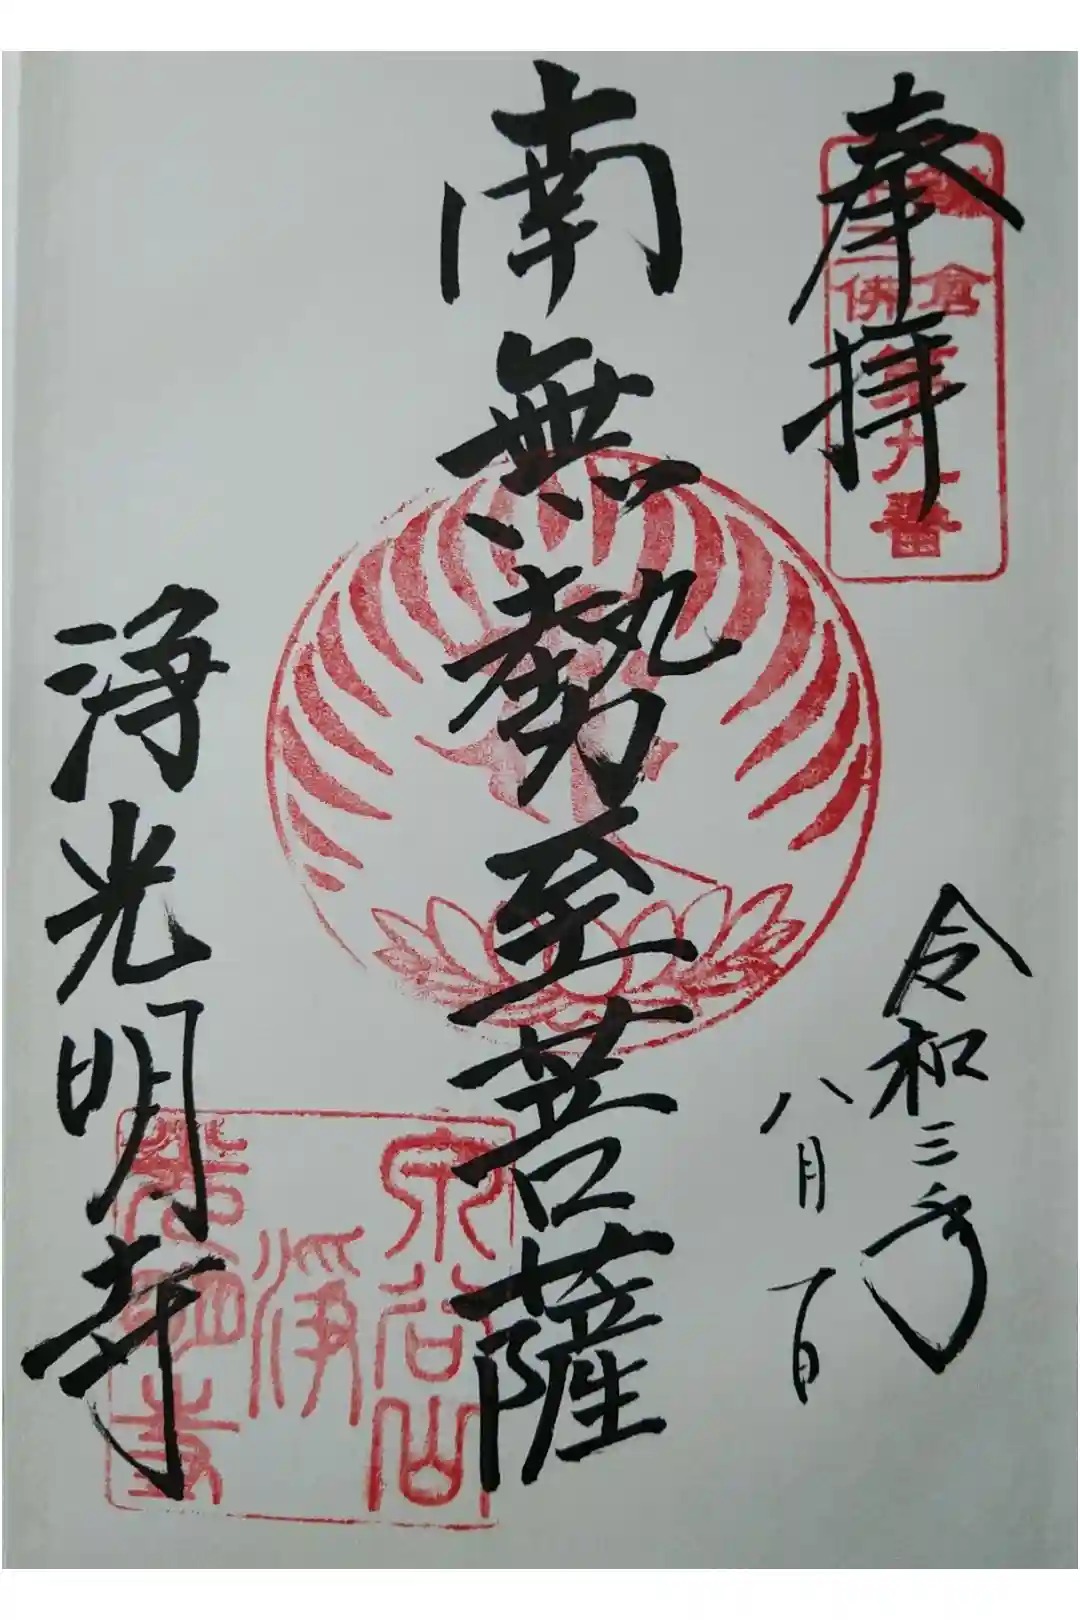 奉拝
鎌倉
十三佛
第九番
令和三年
八月一日
南無勢至菩薩
浄光明寺
泉谷山
淨
光明寺